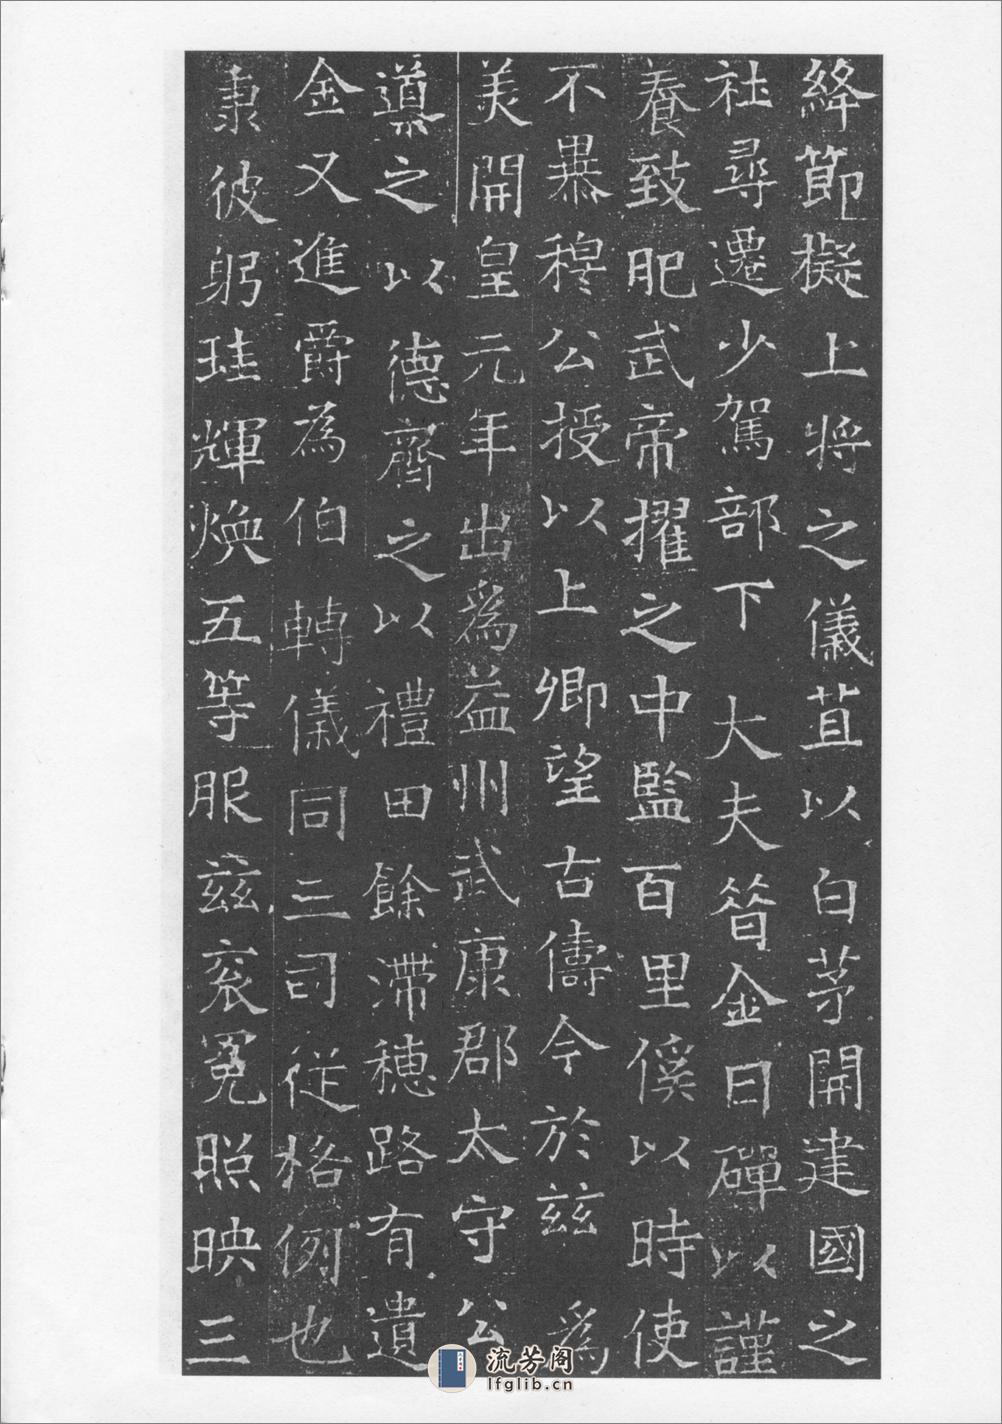 絳節擬上將之儀苴以白茅開建國之
社尋遷少駕部下大夫昝金日磾以謹
養致肥武帝擢之中監百里傒以時使
不暴穆公授以上卿望古儔今於茲為
美開皇元年出為益州武康郡太守公
導之以德齊之以禮田餘滯穗路有遺
金又進爵為伯轉儀同三司從格例也
秉彼躬珪輝煥五等服茲衮冕照映三
流芳阁
lfglib.cn